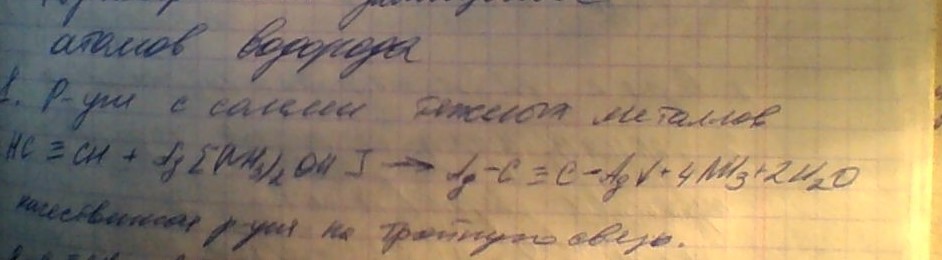 атомов водорода
1. Р-ции с солями тяжелых металлов
HC ≡ CH + Ag[(NH₃)₂OH] → Ag-C ≡ C-Ag↓ + 4NH₃ + 2H₂O
качественная р-ция на тройную связь.